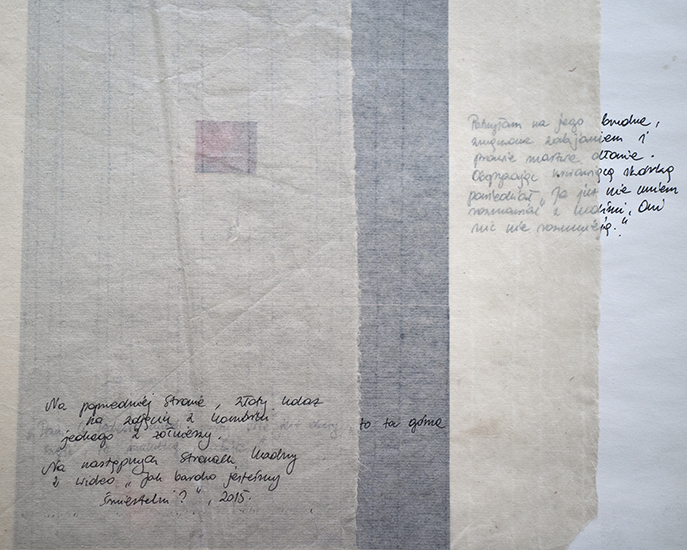 Patrzyłam na jego brudne,
zmęczone zabijaniem i
prawie martwe dłonie.
Obgryzając krwawiącą skórkę
powiedział „Ja już nie umiem
rozmawiać z ludźmi. Oni
nic nie rozumieją."
Na poprzedniej stronie, złoty
na zdjęciu z komórki
to ta góra
jednego z żołnierzy.
Na następnych stronach kadry
z wideo „Jak bardzo jesteśmy
śmiertelni?", 2015.